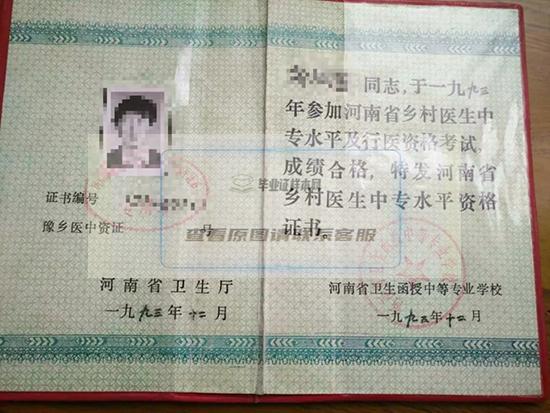 证书编号
豫乡医中资证 号
河南省卫生厅
一九九三年十二月
同志，于一九九三
年参加河南省乡村医生中
专水平及行医资格考试，
成绩合格，特发河南省
乡村医生中专水平资格
证书。
河南省卫生函授中等专业学校
一九九三年十二月
毕业证样本网
查看原图请联系客服